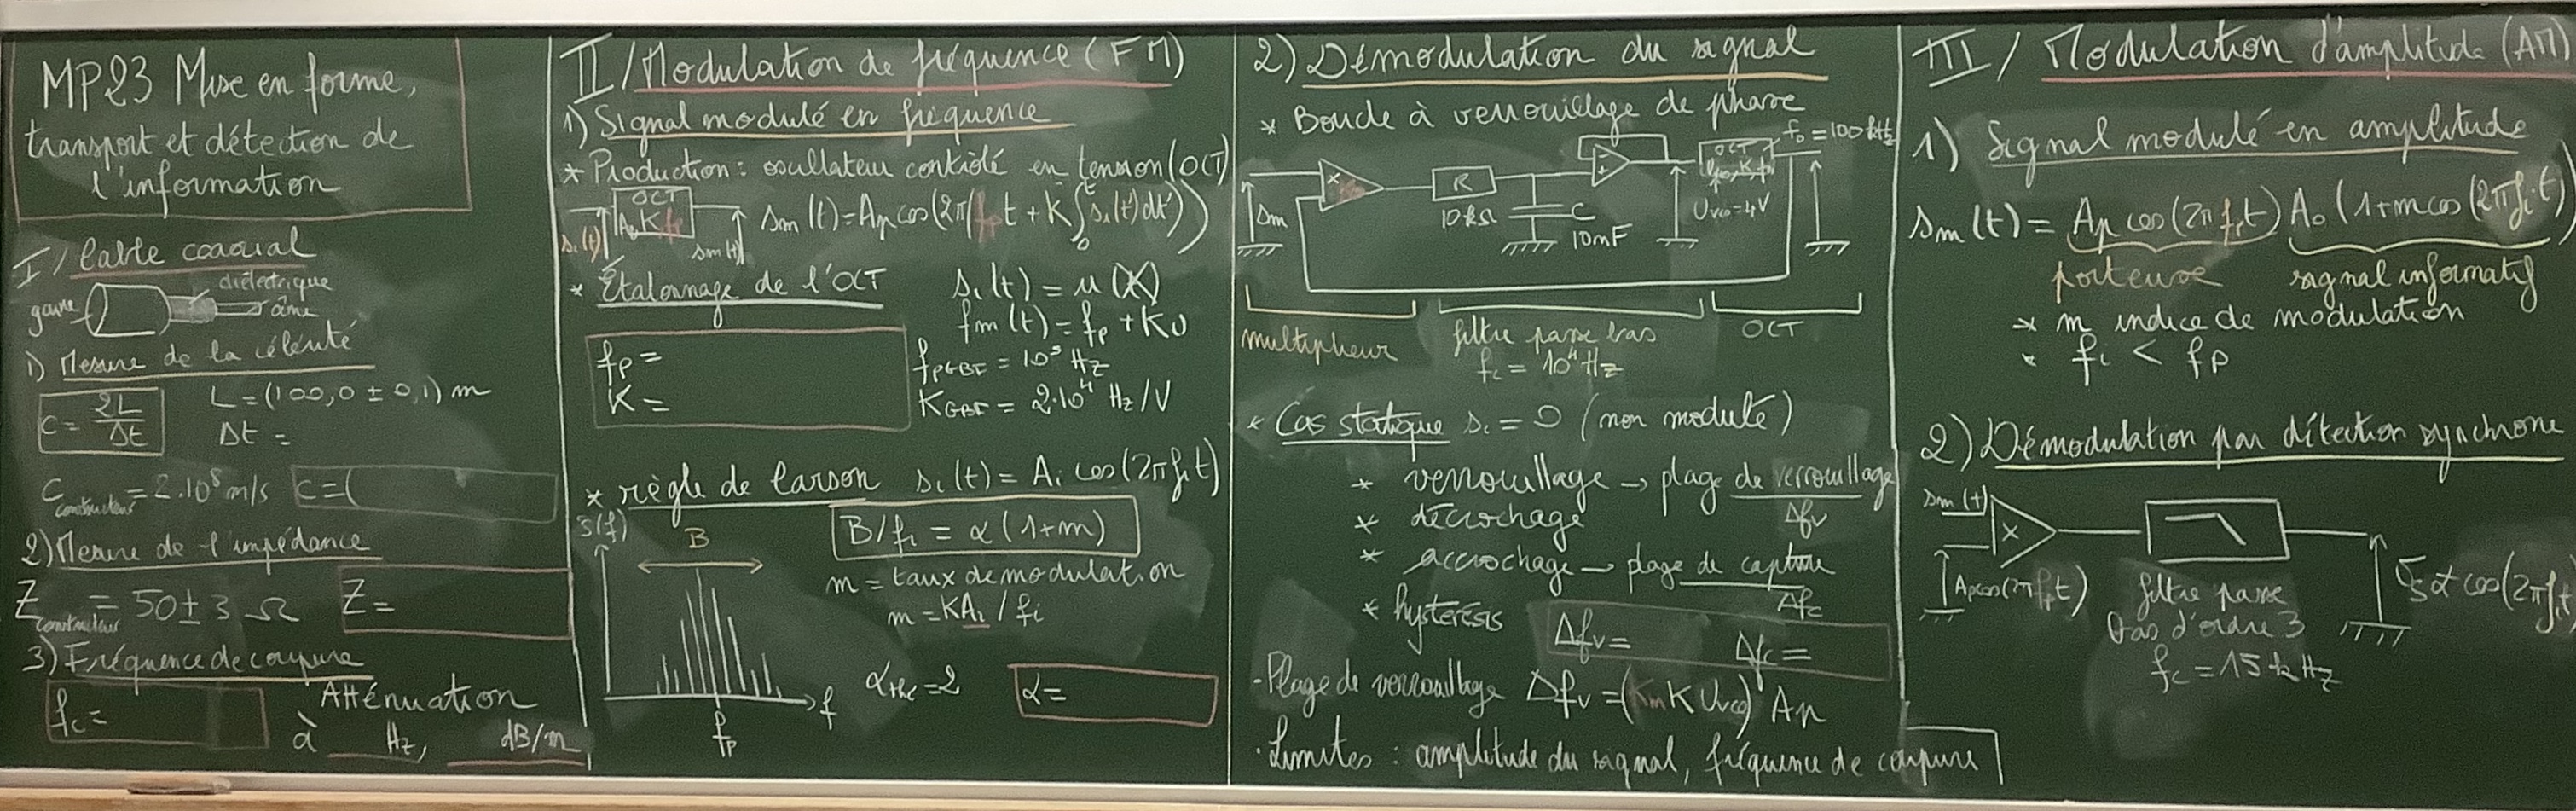 MP23 Mise en forme,
transport et détection de
l'information
I/ Cable coaxial
diélectrique
gaine
âme
1) Mesure de la célérité
c = 2L/Δt
L = (100,0 ± 0,1) m
Δt =
C constructeur = 2.10⁸ m/s
c = (
2) Mesure de l'impédance
Z constructeur = 50 ± 3 Ω
Z =
3) Fréquence de coupure
fc =
Atténuation
à Hz, dB/m
II/ Modulation de fréquence (FM)
1) Signal modulé en fréquence
* Production : oscillateur contrôlé en tension (OCT)
OCT
Ap K fp
si(t)
sm(t)
sm(t) = Ap cos(2π(fp t + K ∫₀ᵗ si(t')dt'))
* Étalonnage de l'OCT
si(t) = u
fm(t) = fp + KU
fp =
K =
fpGBF = 10⁵ Hz
KGBF = 2.10⁴ Hz/V
* règle de Carson si(t) = Ai cos(2πfit)
S(f)
B
B/fi = α(1+m)
m = taux de modulation
m = KAi / fi
f
fp
αthé = 2
α =
2) Démodulation du signal
* Boucle à verrouillage de phase
f0 = 100 kHz
OCT
× Km
R
10 kΩ
C
10 nF
sm
Uvco = 4V
multiplieur
filtre passe bas
fc = 10⁴ Hz
OCT
* Cas statique si = 0 (non modulé)
* verrouillage → plage de verrouillage
Δfv
* décrochage
* accrochage → plage de capture
Δfc
* hystérésis
Δfv = Δfc =
- Plage de verrouillage Δfv = (Km K Uvco) Ap
· Limites : amplitude du signal, fréquence de coupure
III/ Modulation d'amplitude (AM)
1) Signal modulé en amplitude
sm(t) = Ap cos(2πfpt) A0 (1+m cos(2πfit))
porteuse
signal informatif
* m indice de modulation
* fi < fp
2) Démodulation par détection synchrone
sm(t)
×
Ap cos(2πfpt)
filtre passe
bas d'ordre 3
fc = 15 kHz
Us α cos(2πfit)